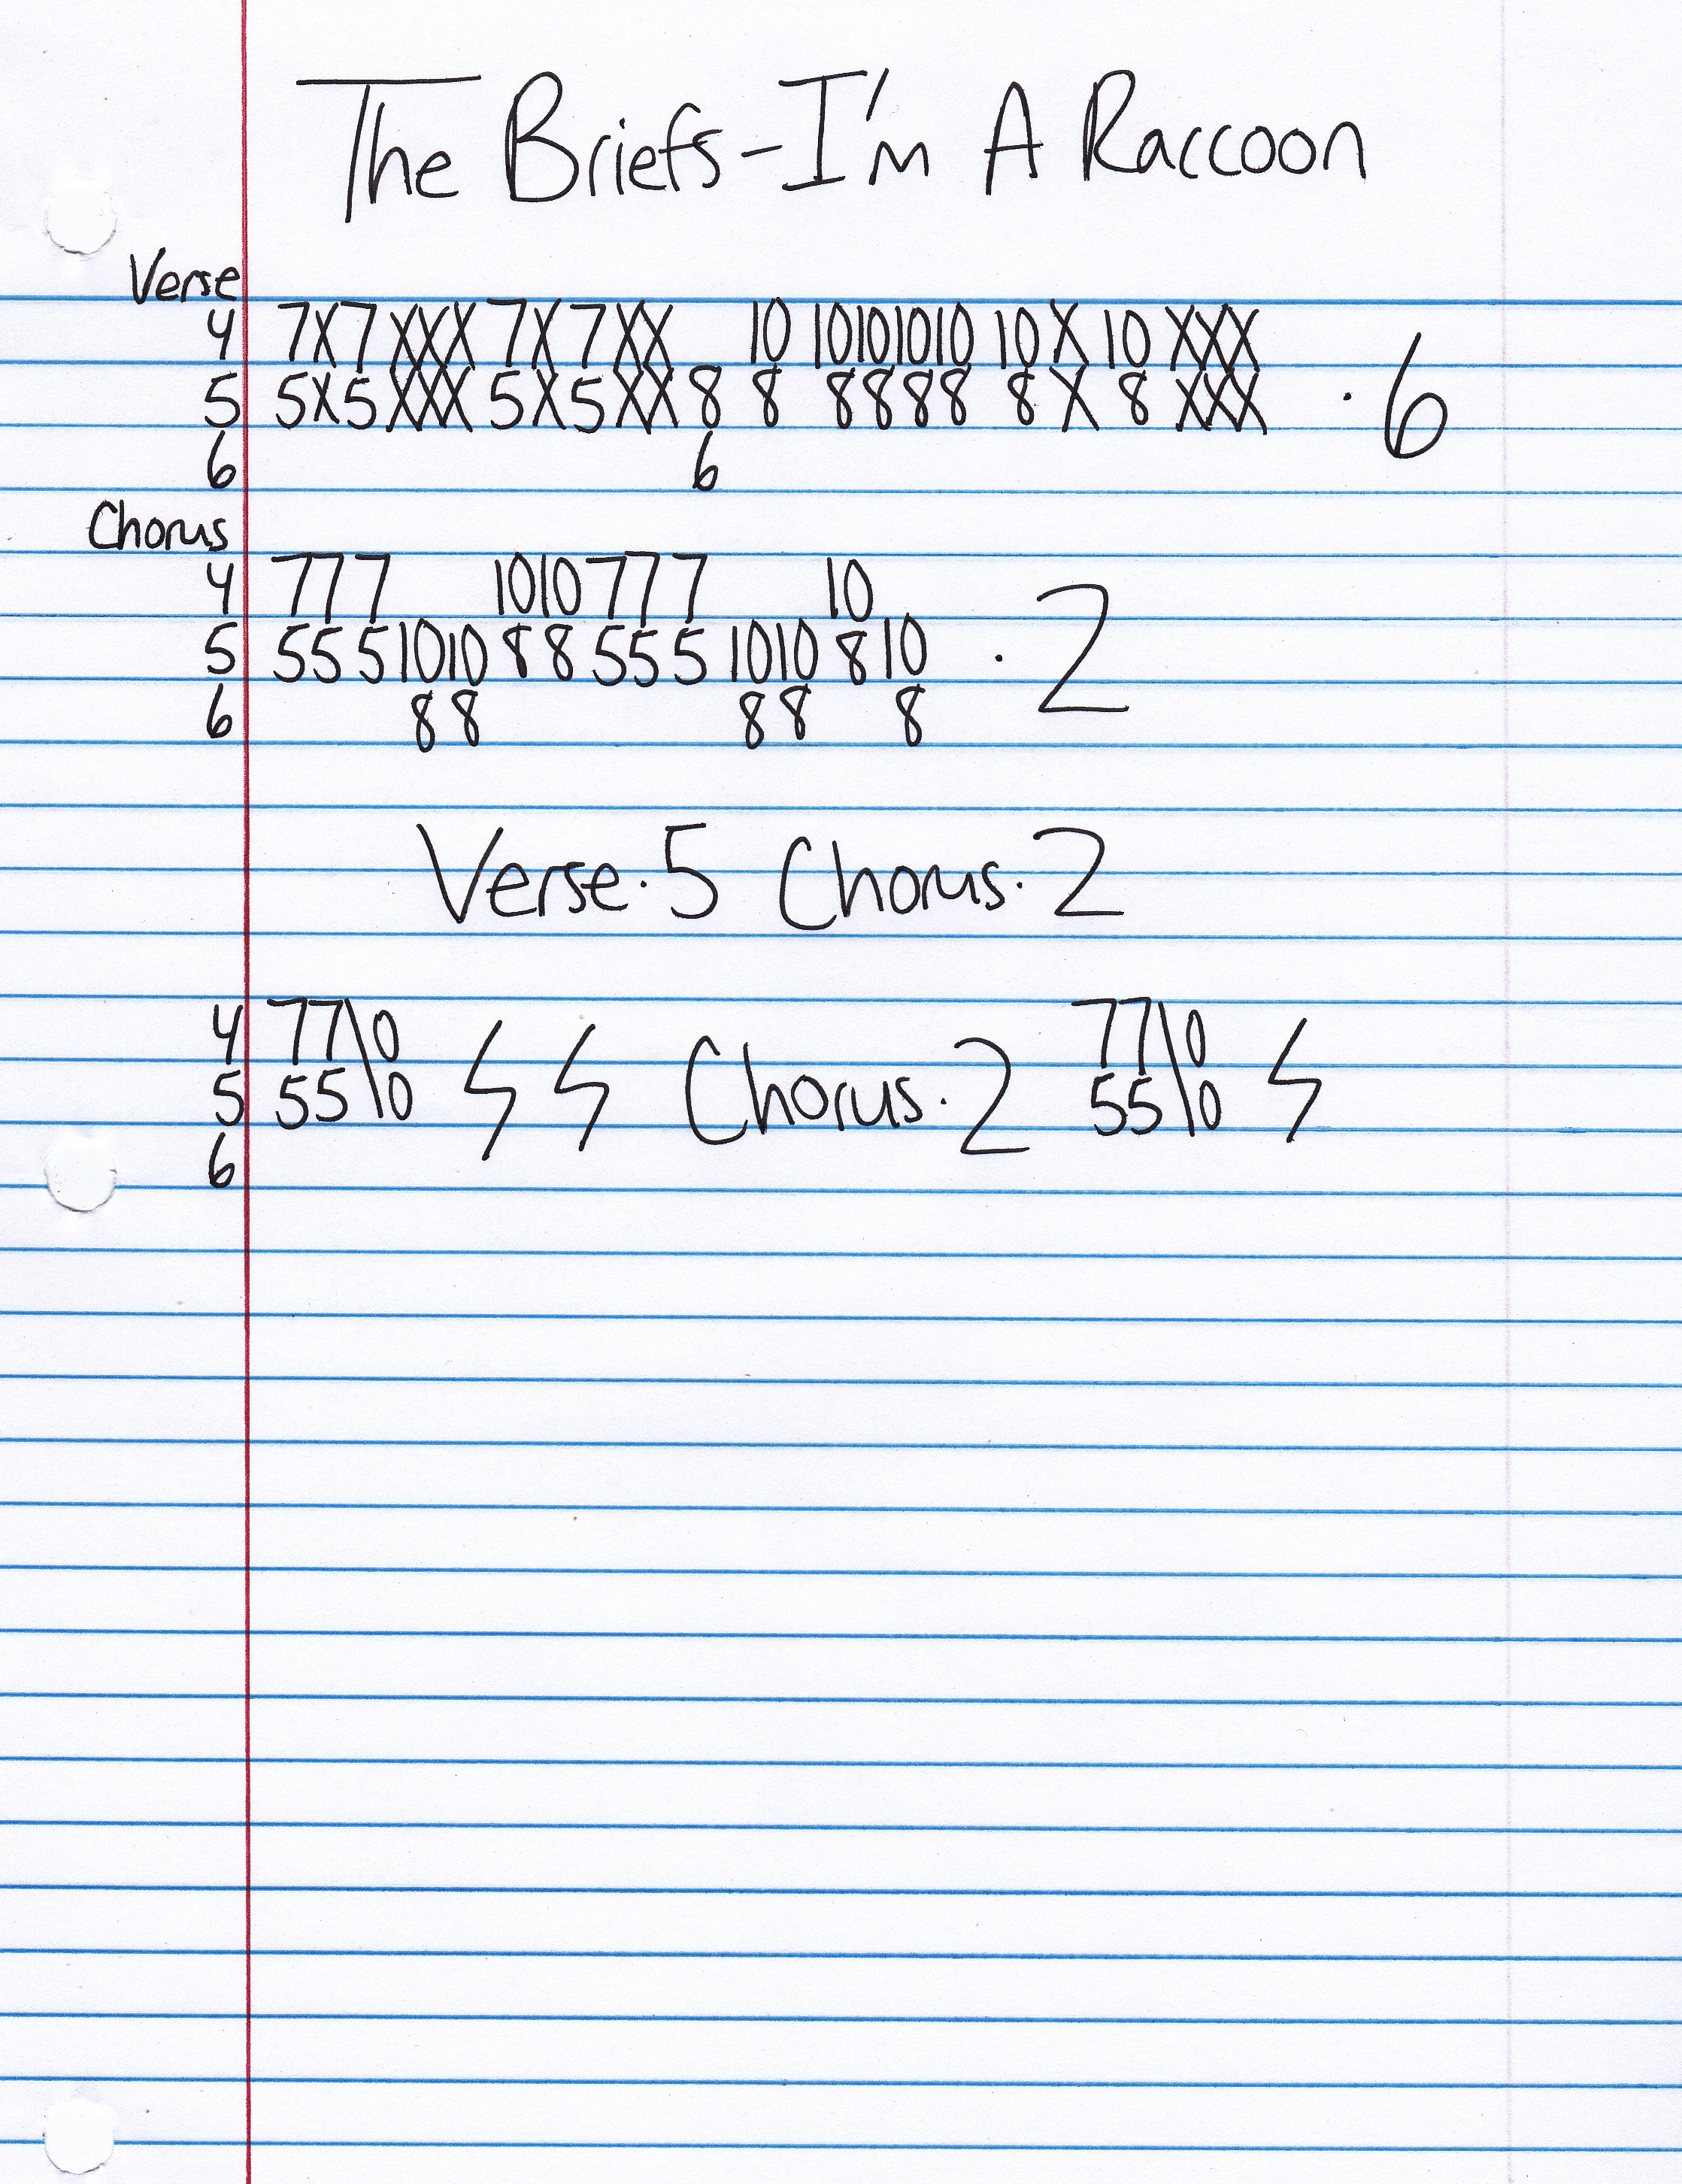 The Briefs - I'm A Raccoon
Verse
4 7X7XXX7X7XX 10 10101010 10X10XXX
5 5X5XXX5X5XX8 8 8888 8X8XXX · 6
6 6
Chorus
4 777 1010777 10
5 5551010885551010810 · 2
6 88 88 8
Verse · 5 Chorus · 2
4 77\0 77\0
5 55\0 Chorus · 2 55\0
6